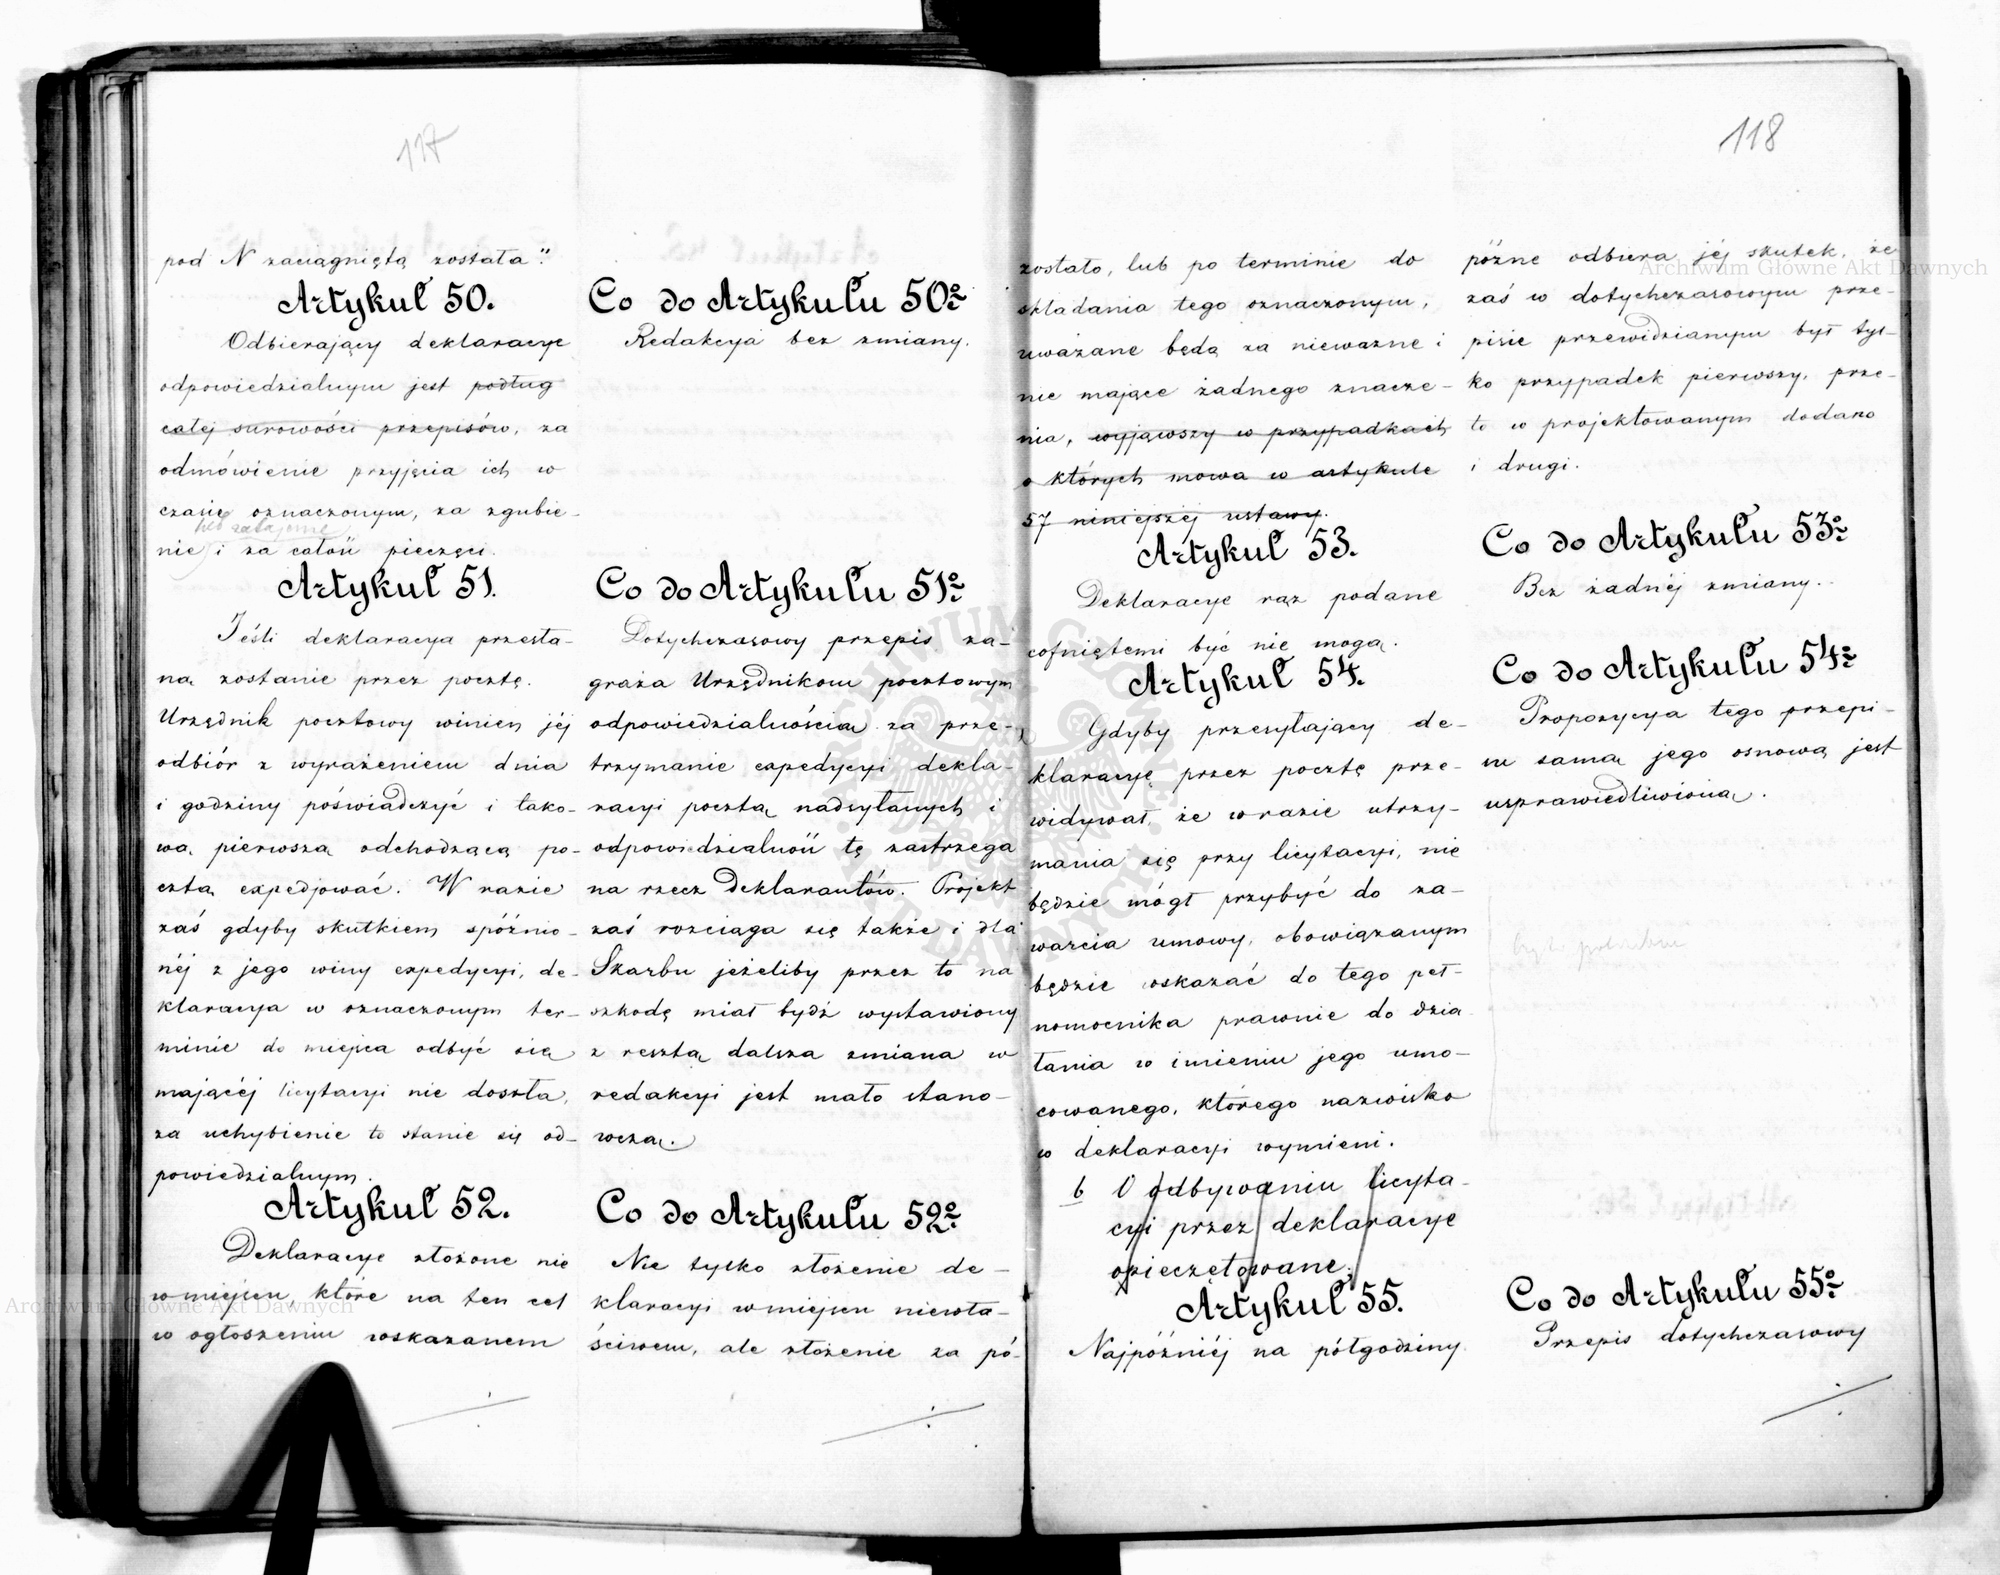 117
pod N zaciągniętą została".
Artykuł 50.
Odbierający deklaracye
odpowiedzialnym jest podług
całej surowości przepisów, za
odmówienie przyjęcia ich w
czasie oznaczonym, za zgubie-
nie i za całość pieczęci.
Artykuł 51.
Jeśli deklaracya przesła-
na zostanie przez pocztę.
Urzędnik pocztowy winien jéj
odbiór z wyrażeniem dnia
i godziny poświadczyć i tako-
wą pierwszą odchodzącą po-
cztą expedjować. W razie
zaś gdyby skutkiem spóźnio-
néj z jego winy expedycyi, de-
klaracya w oznaczonym ter-
minie do miejsca odbyć się
mającéj licytacyi nie doszła,
za uchybienie to stanie się od-
powiedzialnym.
Artykuł 52.
Deklaracye złożone nie
w miejscu, które na ten cel
w ogłoszeniu wskazanem
Co do Artykułu 50º
Redakcya bez zmiany.
Co do Artykułu 51º
Dotychczasowy przepis za-
graża Urzędnikom pocztowym
odpowiedzialnością za prze-
trzymanie expedycyi dekla-
racyi pocztą nadsyłanych i
odpowiedzialność tę zastrzega
na rzecz Deklarantów. Projekt
zaś rozciąga się także i dla
Skarbu jeżeliby przez to na
szkodę miał bydź wystawiony
z resztą dalsza zmiana w
redakcyi jest mało stano-
wczą.
Co do Artykułu 52º
Nie tylko złożenie de-
klaracyi w miejscu niewła-
ściwem, ale złożenie za pó-
118
zostało, lub po terminie do
składania tego oznaczonym,
uważane będą za nieważne i
nie mające żadnego znacze-
nia, wyjąwszy w przypadkach
o których mowa w artykule
57 niniejszéj ustawy.
Artykuł 53.
Deklaracye raz podane
cofniętemi być nie mogą.
Artykuł 54.
Gdyby przesyłający de-
klaracyę przez pocztę prze-
widywał, że w razie utrzy-
mania się przy licytacyi, nie
będzie mógł przybyć do za-
warcia umowy, obowiązanym
będzie wskazać do tego peł-
nomocnika prawnie do dzia-
łania w imieniu jego umo-
cowanego, którego nazwisko
w deklaracyi wymieni.
b O odbywaniu licyta-
cyi przez deklaracye
opieczętowane.
Artykuł 55.
Najpóźniéj na półgodziny
późne odbiera jéj skutek, że
zaś w dotychczasowym prze-
pisie przewidzianym był tyl-
ko przypadek pierwszy, prze-
to w projektowanym dodano
i drugi.
Co do Artykułu 53º
Bez żadnéj zmiany.
Co do Artykułu 54º
Propozycya tego przepi-
su samą jego osnową jest
usprawiedliwioną.
Co do Artykułu 55º
Przepis dotychczasowy
Archiwum Główne Akt Dawnych
Archiwum Główne Akt Dawnych